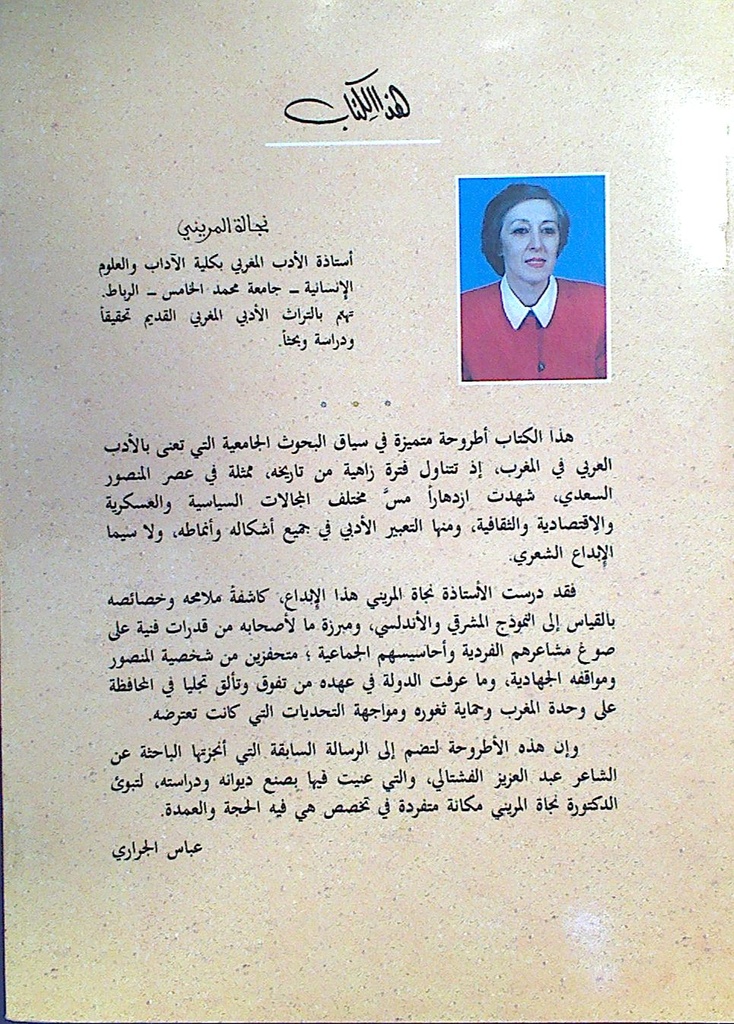 هذا الكتاب
نجاة المريني
أستاذة الأدب المغربي بكلية الآداب والعلوم
الإنسانية ــ جامعة محمد الخامس ــ الرباط.
تهتم بالتراث الأدبي المغربي القديم تحقيقاً
ودراسة وبحثاً.
هذا الكتاب أطروحة متميزة في سياق البحوث الجامعية التي تعنى بالأدب
العربي في المغرب، إذ تتناول فترة زاهية من تاريخه، ممثلة في عصر المنصور
السعدي، شهدت ازدهاراً مسَّ مختلف المجالات السياسية والعسكرية
والإقتصادية والثقافية، ومنها التعبير الأدبي في جميع أشكاله وأنماطه، ولا سيما
الإبداع الشعري.
فقد درست الأستاذة نجاة المريني هذا الإبداع، كاشفةً ملامحه وخصائصه
بالقياس إلى النموذج المشرقي والأندلسي، ومبرزة ما لأصحابه من قدرات فنية على
صوغ مشاعرهم الفردية وأحاسيسهم الجماعية ؛ متحفزين من شخصية المنصور
ومواقفه الجهادية، وما عرفت الدولة في عهده من تفوق وتألق تجليا في المحافظة
على وحدة المغرب وحماية ثغوره ومواجهة التحديات التي كانت تعترضه.
وإن هذه الأطروحة لتضم إلى الرسالة السابقة التي أنجزتها الباحثة عن
الشاعر عبد العزيز الفشتالي، والتي عنيت فيها بصنع ديوانه ودراسته، لتبوئ
الدكتورة نجاة المريني مكانة متفردة في تخصص هي فيه الحجة والعمدة.
عباس الجراري